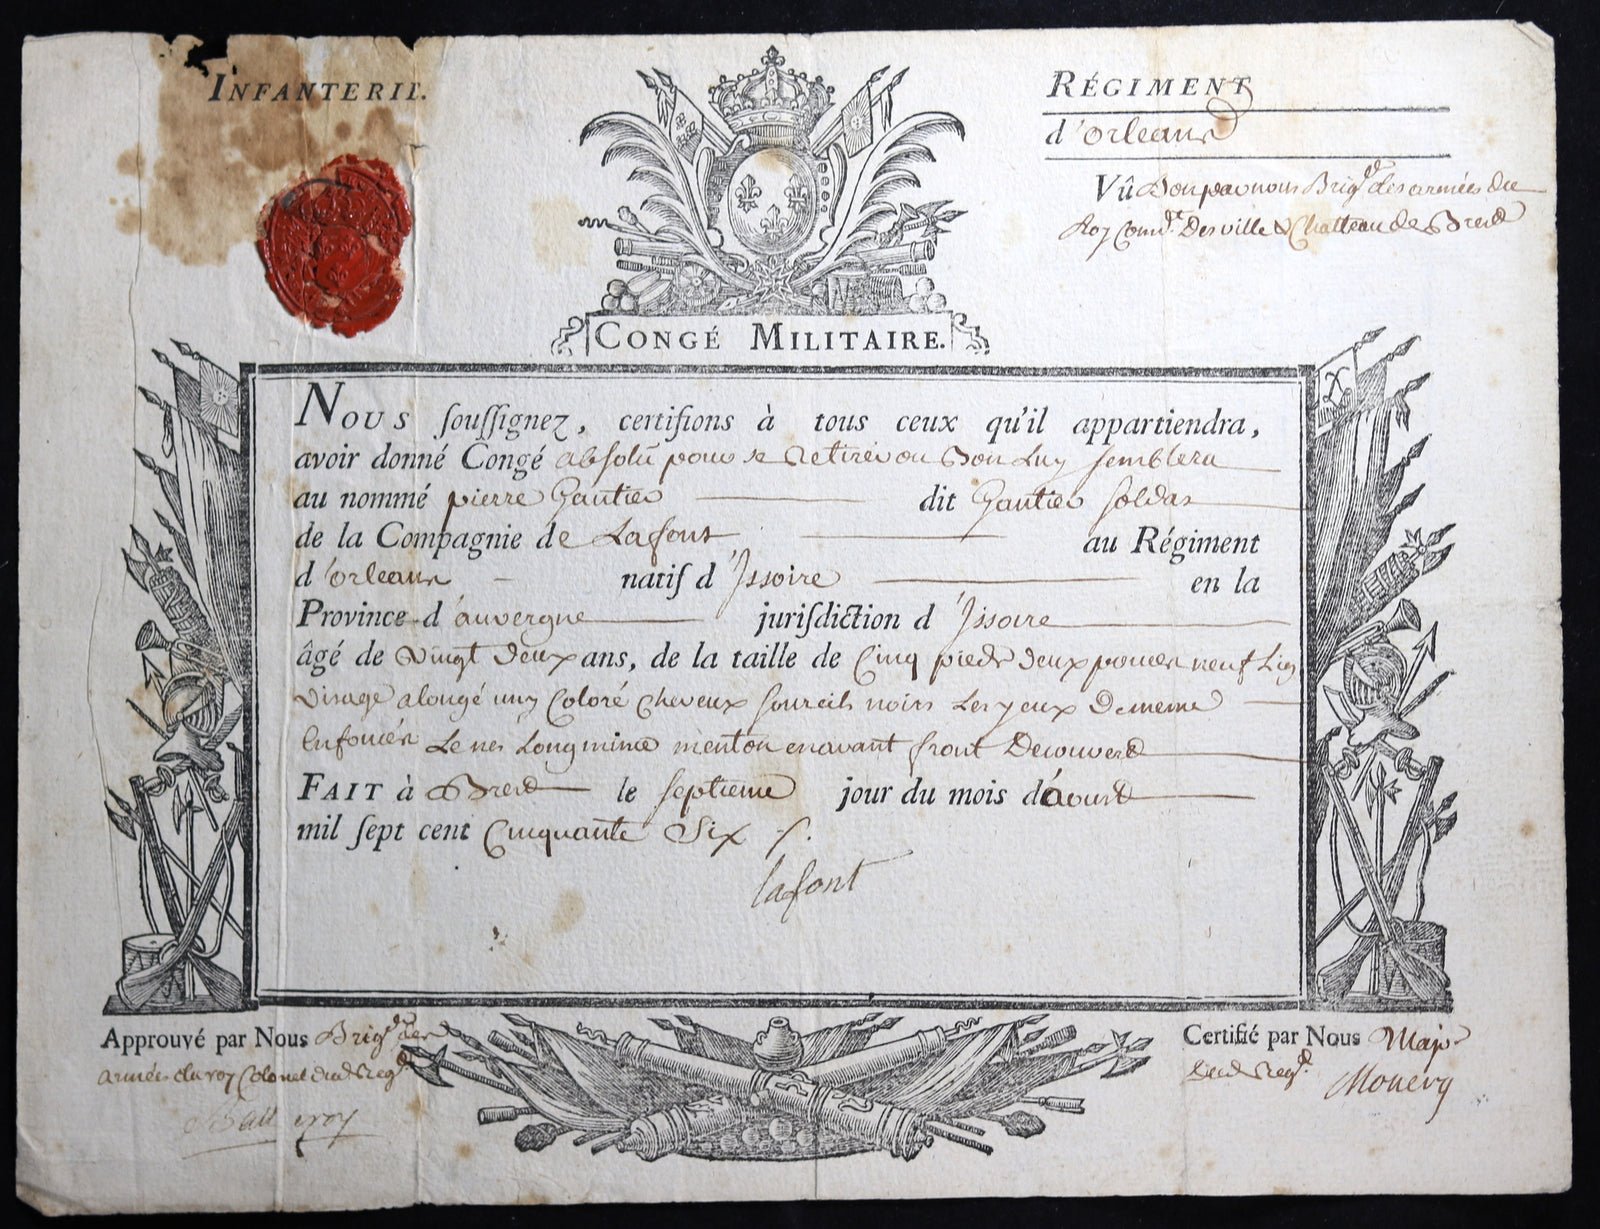 INFANTERIE.
RÉGIMENT
d'orleans
Vû Bon par nous Brig^d des armées du
Roy Com^dt Des ville & Chatteau de Brest
CONGÉ MILITAIRE.
NOUS ſouſſignez, certifions à tous ceux qu'il appartiendra,
avoir donné Congé absolu pour se Retirer ou Bon Luy semblera
au nommé pierre Gautier dit Gautier soldat
de la Compagnie de Lafont au Régiment
d'orleans natif d'Issoire en la
Province d'auvergne juriſdiction d'Issoire
âgé de Vingt deux ans, de la taille de Cinq pieds deux pouces neuf Lig
Visage alongé uny Coloré Cheveux sourcils noirs Les yeux De meme
Enfoncés Le nés Long mince menton en avant front Decouvert
FAIT à Brest le septieme jour du mois d'aoust
mil ſept cent Cinquante Six
lafont
Approuvé par Nous Brig^d des
armées du roy Colonel dud Reg^t
Certifié par Nous Major
Dud Reg^t